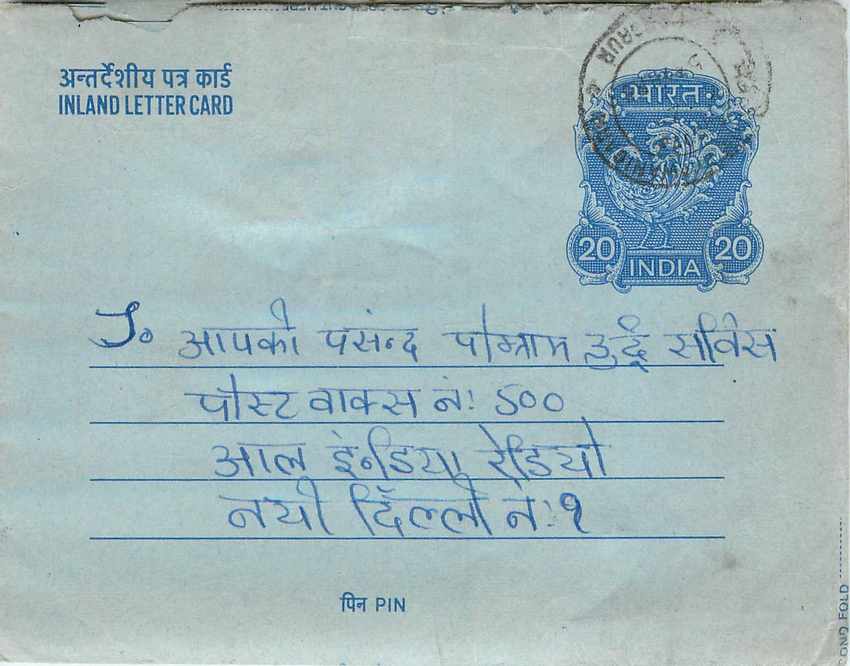 अन्तर्देशीय पत्र कार्ड
INLAND LETTER CARD
भारत
20 20
INDIA
To आपकी पसंन्द पोग्राम उर्दू सर्विस
पोस्ट वाक्स नः 500
आल इंन्डिया रेडियो
नयी दिल्ली नः १
पिन PIN
OND FOLD